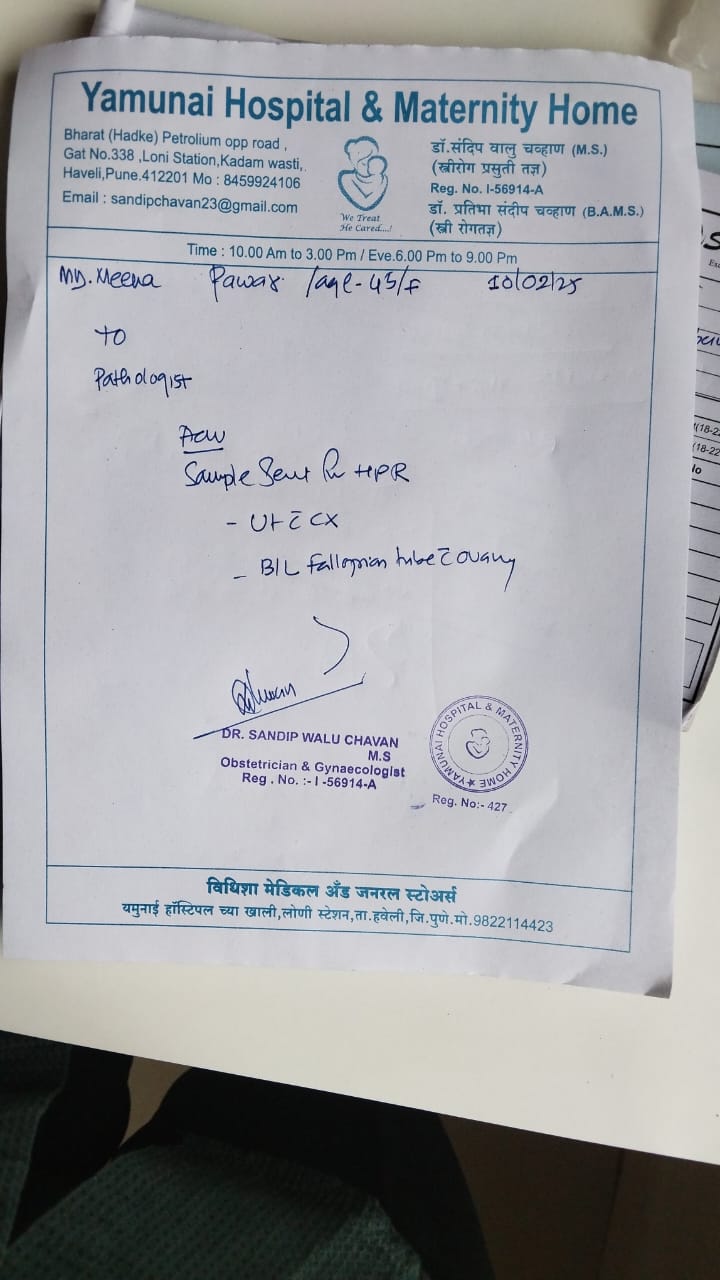 Yamunai Hospital & Maternity Home
Bharat (Hadke) Petrolium opp road ,
Gat No.338 ,Loni Station,Kadam wasti,
Haveli,Pune.412201 Mo : 8459924106
Email : sandipchavan23@gmail.com
We Treat
He Cared....!
डॉ.संदिप वालु चव्हाण (M.S.)
(स्त्रीरोग प्रसुती तज्ञ)
Reg. No. I-56914-A
डॉ. प्रतिभा संदीप चव्हाण (B.A.M.S.)
(स्त्री रोगतज्ञ)
Time : 10.00 Am to 3.00 Pm / Eve.6.00 Pm to 9.00 Pm
Meena Pawar /age-45/F 10/02/25
To
Pathologist
Sample Sent for HPR
- Ut c̄ CX
- B/L fallopian tube c̄ ovary
DR. SANDIP WALU CHAVAN
M.S
Obstetrician & Gynaecologist
Reg . No. :- I -56914-A
YAMUNAI HOSPITAL & MATERNITY HOME
Reg. No:- 427
विथिशा मेडिकल अँड जनरल स्टोअर्स
यमुनाई हॉस्टिपल च्या खाली,लोणी स्टेशन,ता.हवेली,जि.पुणे.मो.9822114423
(18-22